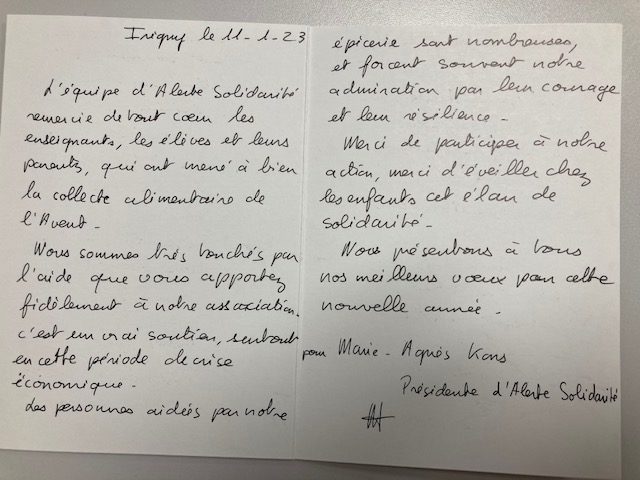 Irigny le 11-1-23
L'équipe d'Alerte Solidarité
remercie de tout cœur les
enseignants, les élèves et leurs
parents, qui ont mené à bien
la collecte alimentaire de
l'Avent.
Nous sommes très touchés par
l'aide que vous apportez
fidèlement à notre association.
c'est un vrai soutien, surtout
en cette période de crise
économique.
Les personnes aidées par notre
épicerie sont nombreuses,
et forcent souvent notre
admiration par leur courage
et leur résilience.
Merci de participer à notre
action, merci d'éveiller chez
les enfants cet élan de
solidarité.
Nous présentons à tous
nos meilleurs vœux pour cette
nouvelle année.
pour Marie-Agnès
Présidente d'Alerte Solidarité